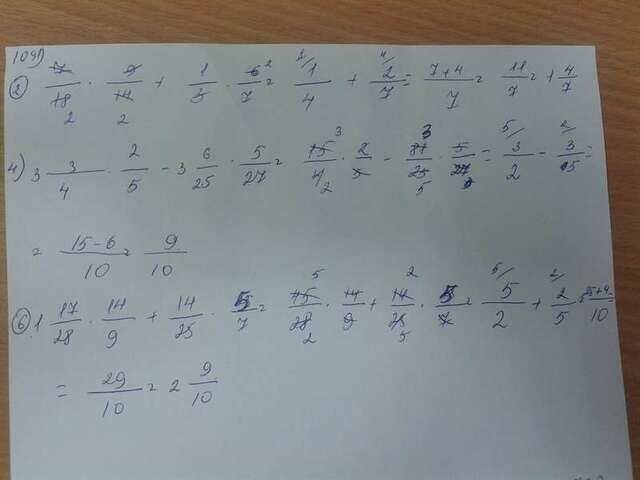 1091)
② 7/18 · 9/14 + 1/3 · 6/7 = 1/4 + 2/7 = 7+4/7 = 11/7 = 1 4/7
4) 3 3/4 · 2/5 - 3 6/25 · 5/27 = 15/4 · 2/5 - 81/25 · 5/27 = 3/2 - 3/5 =
= 15-6/10 = 9/10
⑥ 1 17/28 · 14/9 + 14/25 · 5/7 = 45/28 · 14/9 + 14/25 · 5/7 = 5/2 + 2/5 = 25+4/10 =
= 29/10 = 2 9/10